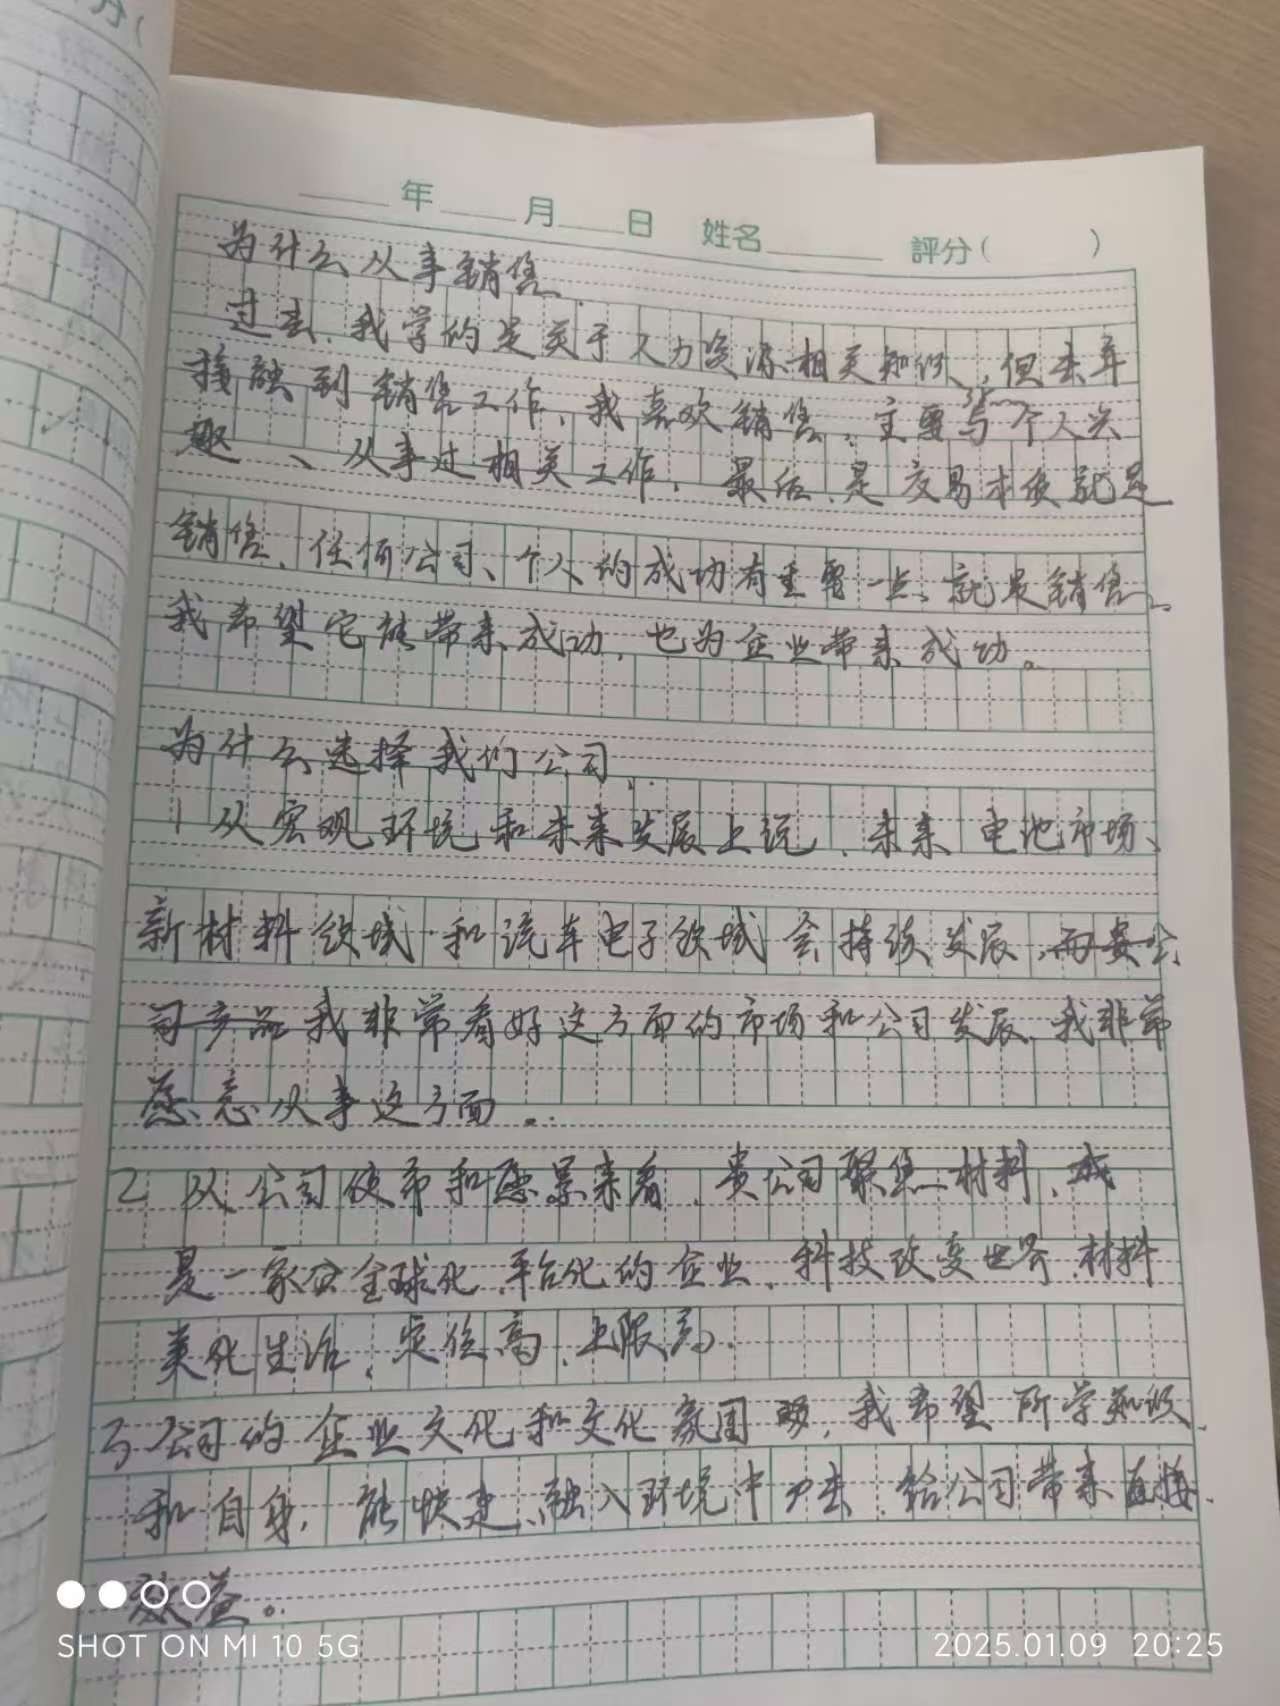 分(
年 月 日 姓名 評分( )
为什么从事销售
过去,我学的是关于人力资源相关知识,但去年
接触到销售工作,我喜欢销售,主要与个人兴
趣、从事过相关工作,最后,是交易本质就是
销售,任何公司、个人的成功有重要一点,就是销售,
我希望它能带来成功,也为企业带来成功。
为什么选择我们公司
1 从宏观环境和未来发展上说,未来电池市场、
新材料领域和汽车电子领域会持续发展,而贵公
司产品我非常看好这方面的市场和公司发展,我非常
愿意从事这方面。
2 从公司使命和愿景来看,贵公司聚焦材料,成
是一家全球化,平台化的企业,科技改变世界,材料
美化生活,定位高,上限高.
3 公司的企业文化和文化氛围,我希望所学知识
和自身,能快速融入环境中去,给公司带来直接
效益。
SHOT ON MI 10 5G
2025.01.09 20:25